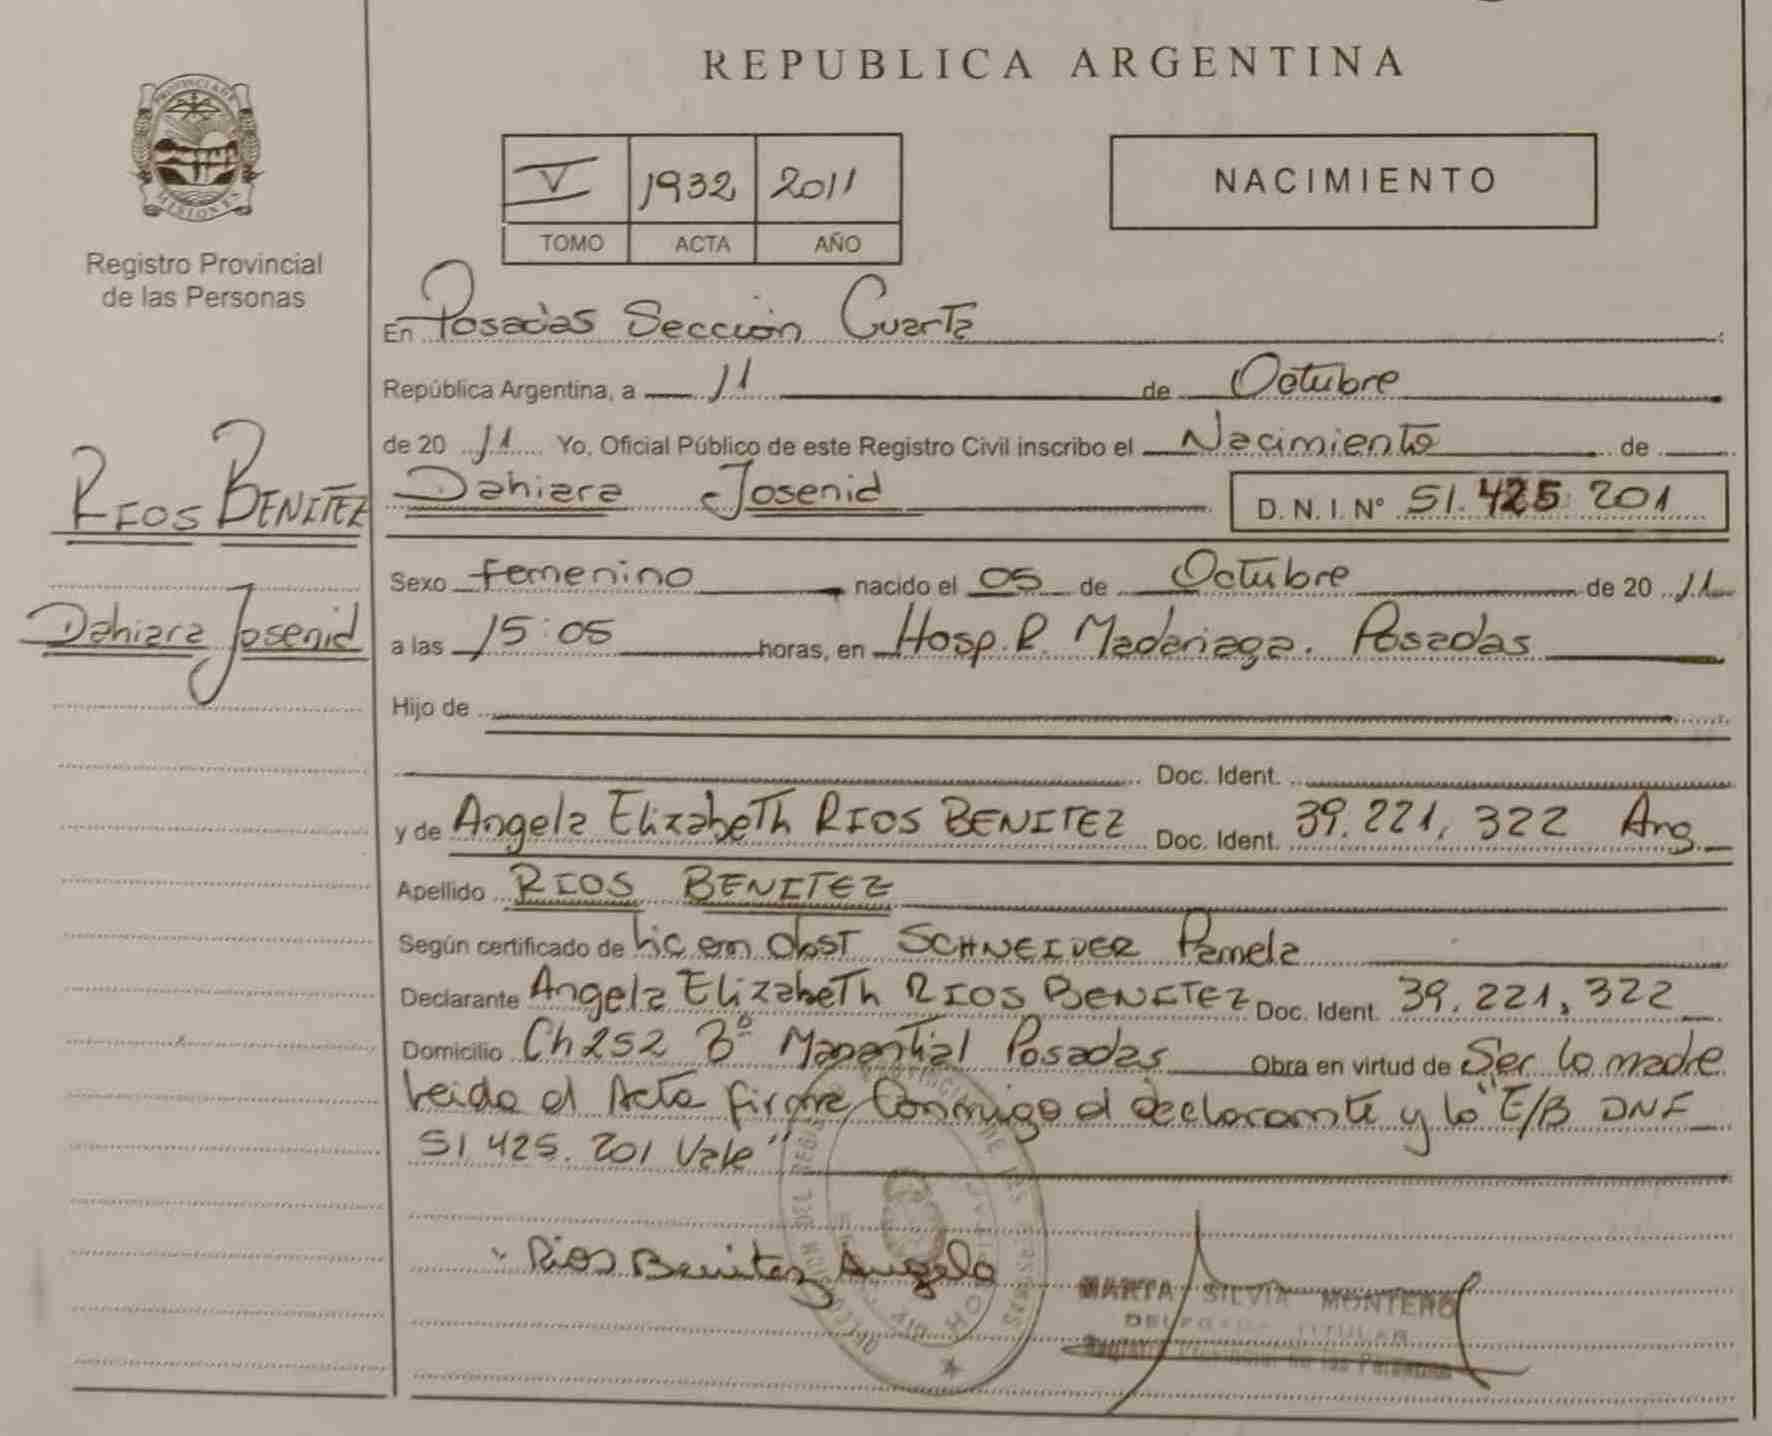 REPUBLICA ARGENTINA
PROVINCIA DE
MISIONES
Registro Provincial
de las Personas
V 1932 2011
TOMO ACTA AÑO
NACIMIENTO
RIOS BENITEZ
Dahiara Josenid
En Posadas Sección Cuarta
República Argentina, a 11 de Octubre
de 20 11 Yo, Oficial Público de este Registro Civil inscribo el Nacimiento de
Dahiara Josenid D. N. I. N° 51.425 201
Sexo femenino nacido el 05 de Octubre de 20 11
a las 15:05 horas, en Hosp. R. Madariaga. Posadas
Hijo de
Doc. Ident.
y de Angela Elizabeth RIOS BENITEZ Doc. Ident. 39.221.322 Arg
Apellido RIOS BENITEZ
Según certificado de Lic en Obst SCHNEIDER Pamela
Declarante Angela Elizabeth RIOS BENITEZ Doc. Ident. 39.221.322
Domicilio Ch 252 Bº Manantial Posadas Obra en virtud de Ser la madre
Leida el Acta firma Conmigo el declarante y lo "E/B DNI
51 425. 201 Vale"
Rios Benitez Angela
MARTA SILVIA MONTERO
DELEGADA TITULAR
Registro Provincial de las Personas